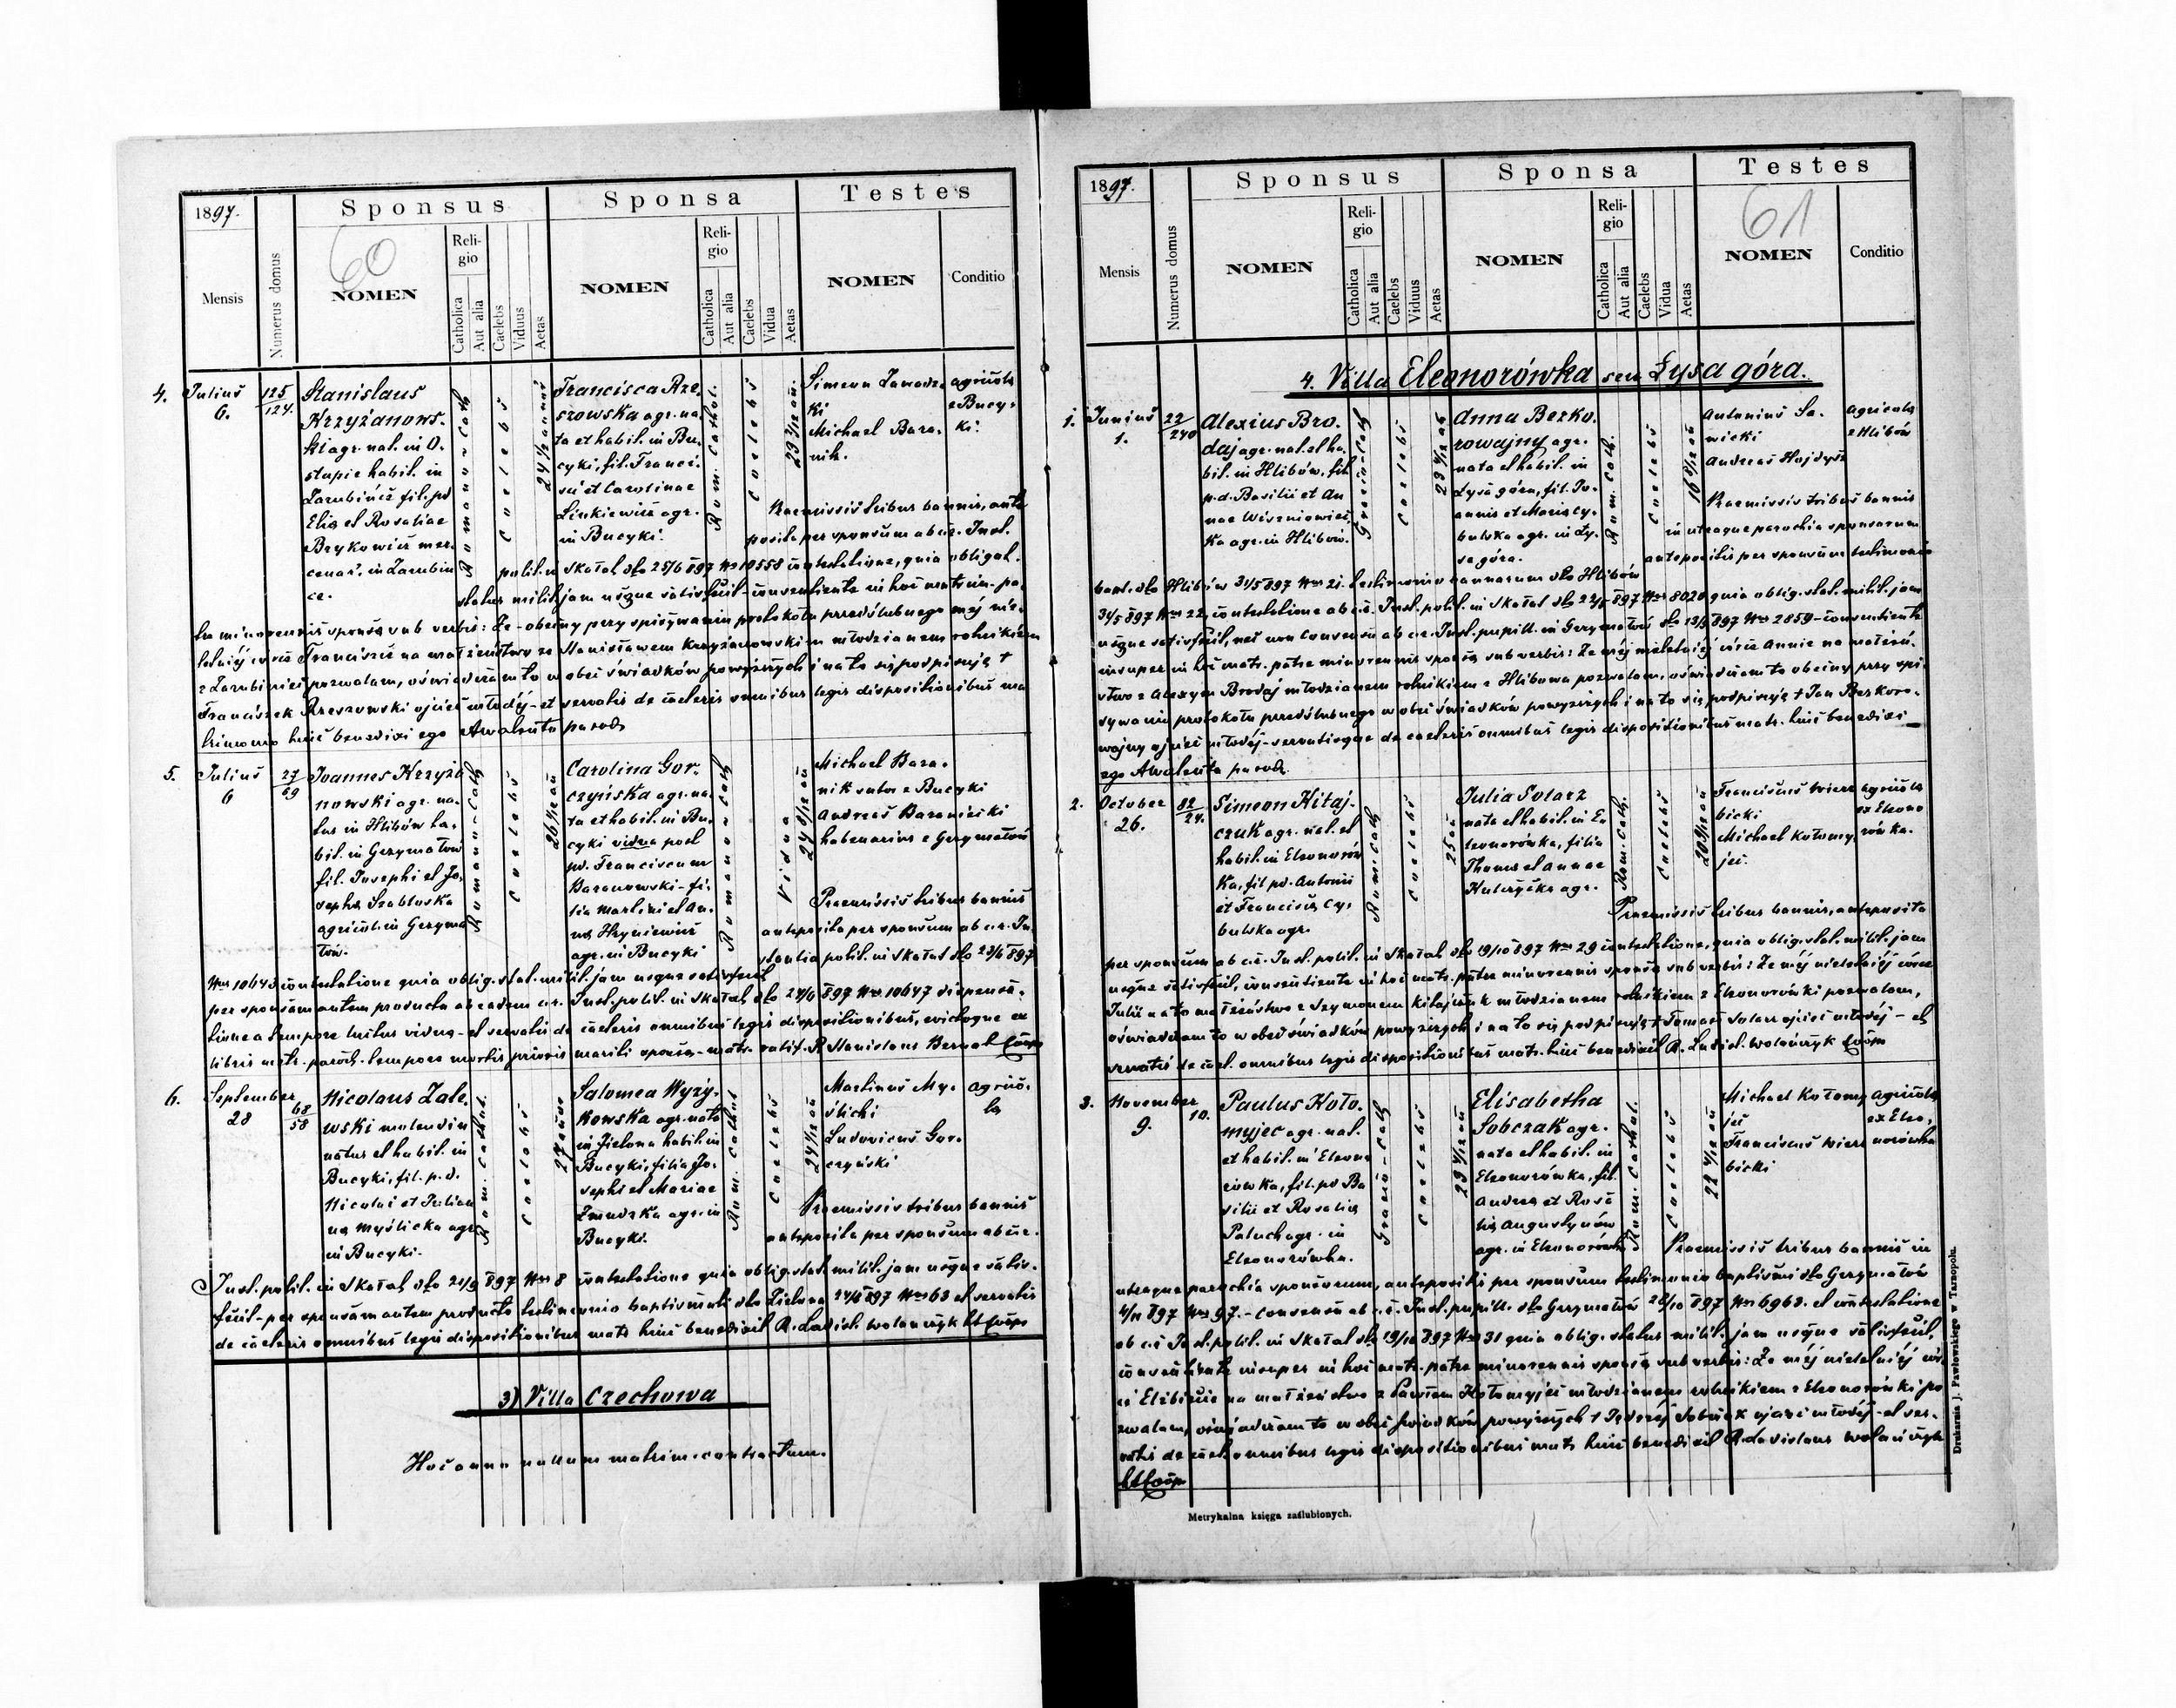 1897.
Numerus domus
Sponsus
Sponsa
Testes
60
Mensis
NOMEN
Religio
Catholica
Aut alia
Caelebs
Viduus
Aetas
NOMEN
Religio
Catholica
Aut alia
Caelebs
Vidua
Aetas
NOMEN
Conditio
4. Julius
6.
125
124.
Stanislaus
Krzyżanows-
ki agr. nat. in O-
stapie habit. in
Zarubińce fil. pd
Eliæ et Rosaliae
Brykowicz mer-
cenar. in Zarubin
ce.
Romano-Cath
Caelebs
24 1/2 annor
Francisca Rze-
szowska agr. na-
ta et habit. in Bu-
cyki, fil. Franci-
sci et Carolinae
Linkiewicz agr.
in Bucyki.
Rom. Cathol.
Caelebs
Simeon Zawadz-
ki
Michael Bara-
nik.
agricola
e Bucy-
ki.
Praemissis tribus bannis, ante
posita per sponsum ab c.r. Inst.
polit. in Skałat dto 25/6 897 Nro 10558 contestatione, quia obligat.
status milit. jam usque satisfecit - consentiente in hoc matrim. pa-
tre minorennis sponsæ sub verbis: Że - obecny przy spisywaniu protokołu przedślubnego mej nie-
letniéj córce Franciszce na małżeństwo ze Stanisławem Krzyżanowskim młodzianem rolnikiem
z Zarubiniec pozwalam, oświadczam to w obec świadków powyższych i na to się podpisuję †
Franciszek Rzeszowski ojciec młodéj - et servatis de caeteris omnibus legis dispositionibus ma
trimonio huic benedixi ego Awalenta paroch
5. Julius
6
27
69
Joannes Krzyża
nowski agr. na-
tus in Hlibów ha-
bit. in Grzymałów
fil. Josephi et Jo-
sephæ Szablowska
agricol. in Grzyma
łów.
Romano-Cath
Caelebs
Carolina Gor-
czyńska agr. na-
ta et habit. in Bu-
cyki vidua post
pd. Franciscum
Baranowski - fi-
lia Martini et An-
næ Hryniewicz
agr. in Bucyki
Romano-cath
Vidua
Michael Bara-
nik sutor e Bucyki
Andreas Baraniecki
habenarius e Grzymałów
Praemissis tribus bannis
anteposita per sponsum ab c.r. In-
stantia polit. in Skałat dto 23/6 897
Nro 10643 contestatione quia oblig. stat. milit. jam usque satisfecit
per sponsam autem producta ab eadem c.r. Inst. polit. in Skałat dto 24/6 897 Nro 10647 dispensa-
tione a tempore luctus viduæ - et servatis de caeteris omnibus legis dispositionibus, evictoque ex
libris metr. paroch. tempore mortis prioris mariti sponsæ - matr. ratif. R Stanislaus Bernal Coop
6. September
28
68
58
Nicolaus Zale-
wski molendin
natus et habit. in
Bucyki, fil. p.d.
Nicolai et Julian
næ Myślicka agr.
in Bucyki.
Rom. Cathol.
Caelebs
27 annor
Salomea Wyży-
kowska agr. nata
in Zielona habit. in
Bucyki, filia Jo-
sephi et Mariae
Żmudzka agr. in
Bucyki.
Rom. Cathol
Caelebs
Martinus My-
ślicki
Ludovicus Gor-
czyński
agrico-
la
Praemissis tribus bannis
anteposita per sponsum ab c.r.
Inst. polit. in Skałat dto 21/9 897 Nro 8 contestatione quia oblig. stat. milit. jam usque satis-
fecit - per sponsam autem producto testimonio baptismali dto Zielona 24/8 897 Nro 63 et servatis
de caeteris omnibus legis dispositionibus matr huic benedixit R. Ladisl. Wolańczyk Lt Coop
3) Villa Czechowa
Hoc anno nullum matrim. contractum.
1897.
Numerus domus
Sponsus
Sponsa
Testes
61
Mensis
NOMEN
Religio
Catholica
Aut alia
Caelebs
Viduus
Aetas
NOMEN
Religio
Catholica
Aut alia
Caelebs
Vidua
Aetas
NOMEN
Conditio
4. Villa Eleonorówka seu Łysa góra.
1. Junius
1.
22
240
Alexius Bro-
daj agr. nat. et ha-
bit. in Hlibów, fil.
p.d. Basilii et An
nae Wiszniowiec-
ka agr. in Hlibów.
Graeco-Cath
Caelebs
Anna Bezko-
rowajny agr.
nata et habit. in
Łysa góra, fil. Jo-
annis et Mariæ Cy-
bulska agr. in Ły-
sa góra.
Rom. Cath.
Caelebs
Antonius Sa-
wicki
Andreas Hajdysz
agricola
e Hlibów
Praemissis tribus bannis
in utraque parochia sponsorum
antepositis per sponsum testimonio
bapt. dto Hlibów 31/5 897 Nro 21. testimonio bannorum dto Hlibów
31/5 897 Nro 22, contestatione ab c.r. Inst. polit. in Skałat dto 22/5 897 Nro 8020 quia oblig. stat. milit. jam
usque satisfecit, nec non consensu ab c.r. Inst. pupill. in Grzymałów dto 13/5 897 Nro 2859 - consentiente
insuper in hoc matr. patre minorennis sponsæ sub verbis: Że méj nieletniéj córce Annie na małżeń-
stwo z Alexym Brodaj młodzianem rolnikiem z Hlibowa pozwalam, oświadczam to obecny przy spi-
sywaniu protokołu przedślubnego w obec świadków powyższych i na to się podpisuję † Jan Bezkoro-
wajny ojciec młodéj - servatisque de caeteris omnibus legis dispositionibus matr. huic benedixi
ego Awalenta paroch.
2. October
26.
82
24.
Simeon Kitaj-
czuk agr. nat. et
habit. in Eleonorów
ka, fil pd. Antonii
et Franciscæ Cy-
bulska agr.
Rom. Cath
Caelebs
Julia Solarz
nata et habit. in E-
leonorówka, filia
Thomæ et Annae
Kulczycka agr.
Rom. Cath.
Caelebs
Franciscus Wierz
bicki
Michael Kołomy-
jec.
agricola
ex Eleono
rówka.
Praemissis tribus bannis, anteposita
per sponsum ab c.r. Inst. polit. in Skałat dto 19/10 897 Nro 29 contestatione, quia oblig. stat. milit. jam
usque satisfecit, consentiente in hoc matr. patre minorennis sponsæ sub verbis: Że méj nieletniéj córce
Julii na to małżeństwo z Szymonem Kitajczuk młodzianem rolnikiem z Eleonorówki pozwalam,
oświadczam to w obec świadków powyższych i na to się podpisuję † Tomasz Solarz ojciec młodéj - et
servatis de caet. omnibus legis dispositionibus matr. huic benedixit R. Ladisl. Wolańczyk Coop
3. November
9.
10.
Paulus Koło-
myjec agr. nat.
et habit. in Eleono
rówka, fil. pd Ba
silii et Rosaliæ
Paluch agr. in
Eleonorówka.
Graeco-Cath
Caelebs
Elisabetha
Sobczak agr.
nata et habit. in
Eleonorówka, fil.
Andreæ et Rosa
liæ Augustynów
agr. in Eleonorówka
Rom. Cathol.
Caelebs
Michael Kołomy
jec
Franciscus Wierz
bicki
agricola
ex Eleo-
norówka
Praemissis tribus bannis in
utraque parochia sponsorum, antepositis per sponsum testimonio baptismi dto Grzymałów
4/11 897 Nro 97. - consensu ab c.r. Inst. pupill. dto Grzymałów 28/10 897 Nro 6963. et contestatione
ab c.r. Inst. polit. in Skałat dto 19/10 897 Nro 31 quia oblig. status milit. jam usque satisfecit,
consentiente insuper in hoc matr. patre minorennis sponsæ sub verbis: Że méj nieletniéj cór-
ce Elżbiecie na małżeństwo z Pawłem Kołomyjec młodzianem rolnikiem z Eleonorówki po
zwalam, oświadczam to w obec świadków powyższych † Jędrzéj Sobczak ojciec młodéj - et ser-
vatis de caet. omnibus legis dispositionibus matr. huic benedixit R. Ladislaus Wolańczyk
Lt Coop
Metrykalna księga zaślubionych.
Drukarnia J. Pawłowskiego w Tarnopolu.